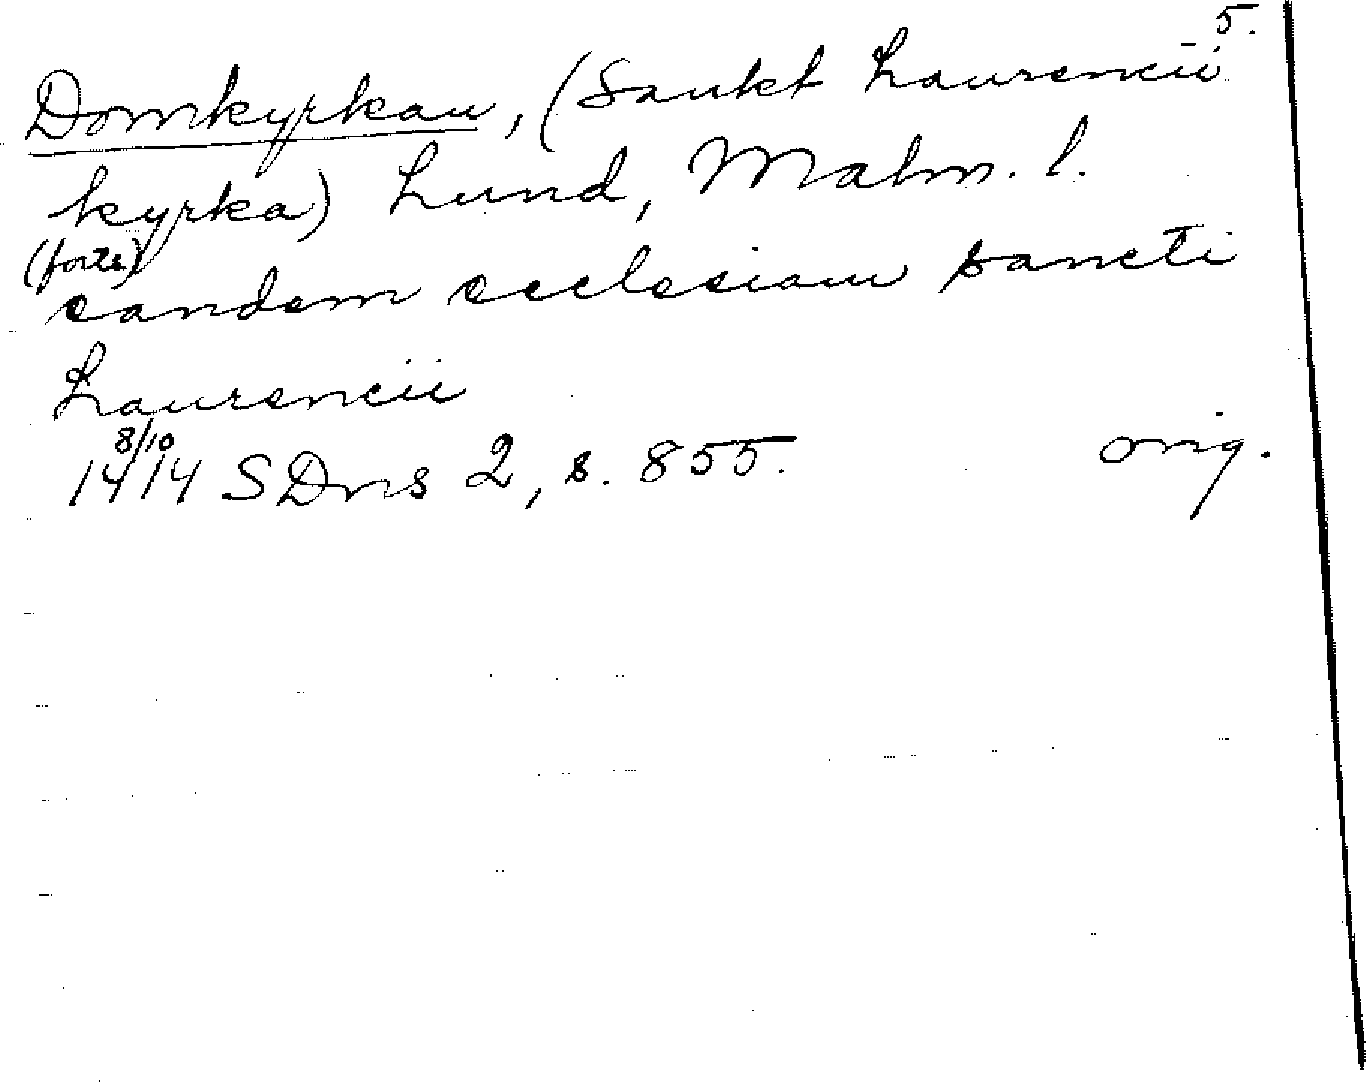 5.
Domkyrkan, (Sankt Laurencii
kyrka) Lund, Malm. l.
(forts)
eandem ecclesiam sancti
Laurencii
8/10
1414 SDns 2, s. 855. orig.